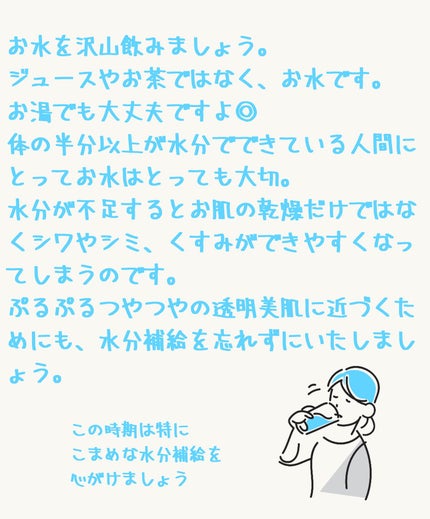 お水を沢山飲みましょう。
ジュースやお茶ではなく、お水です。
お湯でも大丈夫ですよ◎
体の半分以上が水分でできている人間に
とってお水はとっても大切。
水分が不足するとお肌の乾燥だけではな
くシワやシミ、くすみができやすくなっ
てしまうのです。
ぷるぷるつやつやの透明美肌に近づくた
めにも、水分補給を忘れずにいたしまし
ょう。
この時期は特に
こまめな水分補給を
心がけましょう